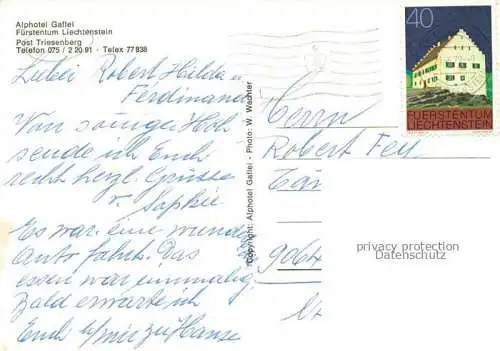 Alphotel Gaflei
Fürstentum Liechtenstein
Post Triesenberg
Telefon 075 / 2 20 91 - Telex 77 838
Robert Hilda u
Ferdinand
Von
sende ich Euch
recht herzl. Grüsse
v. Sophie
Es war eine wunder
Auto fahrt. Das
essen war einmalig
Bald erwarte ich
Euch zu Hause
Copyright: Alphotel Gaflei - Photo: W. Wachter
40
FUERSTENTUM
LIECHTENSTEIN
Herrn
Robert Fey
privacy protection
Datenschutz